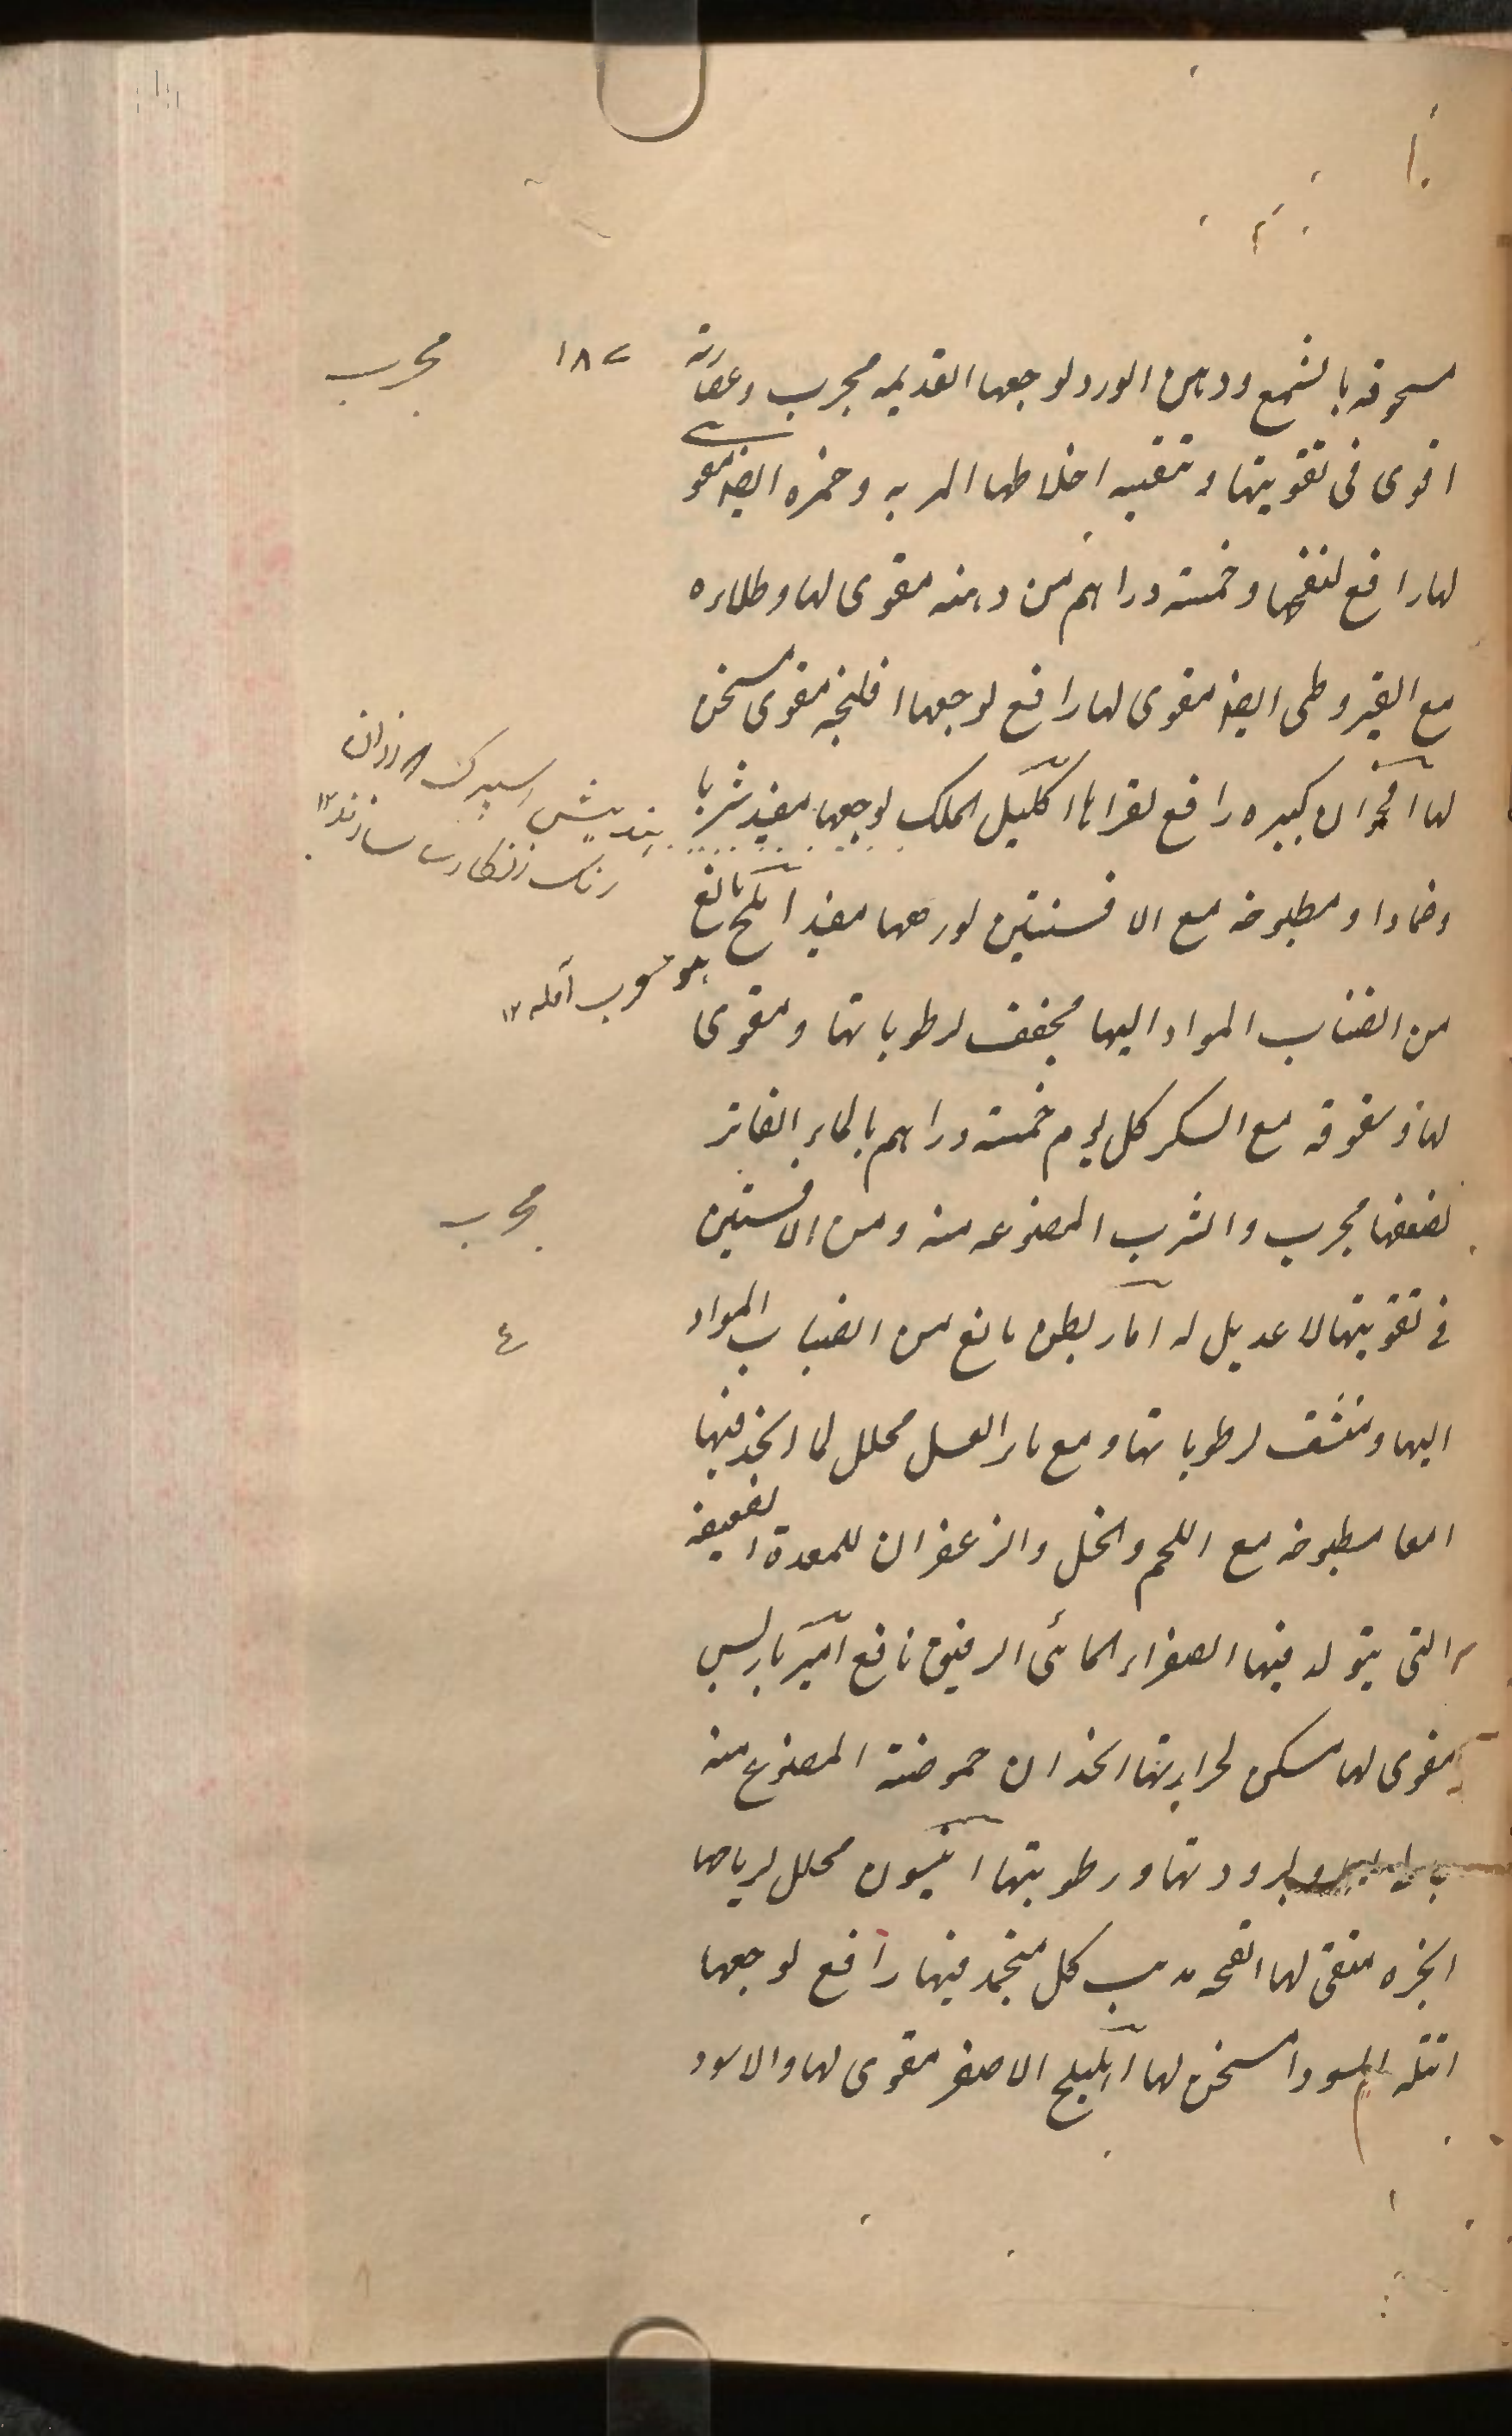 مسحوقه بالشمع ودهن الورد لوجعها القديمه مجرب وعصارته
۱۸۷
مجرب
اقوى فى تقويتها وتنقيه اخلاطها المريه وخمره ايضا مقوى
لها رافع لنفخها وخمسة دراهم من دهنه مقوى لها وطلاءه
مع القيروطى ايضا مقوى لها رافع لوجعها افلنجه مقوى مسخن
لها اقحوان كبيره رافع لقراها اكليل الملك لوجعها مفيد شربا
رنك زنكارى سازند ۱۲
وضمادا ومطبوخه مع الافسنتين لورمها مفيد املج مانع
هو معرب آمله ۱۲
من انصباب المواد اليها مجفف لرطوباتها ومقوى
لها وسفوفه مع السكر كل يوم خمسة دراهم بالماء الفاتر
لضعفها مجرب والشرب المصنوعه منه ومن الافسنتين
مجرب
فى تقويتها لا عديل له مانع من انصباب المواد
٤
اليها ومنشف لرطوباتها ومع ماء العسل محلل لما انجمد فيها
امعا مطبوخه مع اللحم والخل والزعفران للمعدة الضعيفه
التى يتولد فيها الصفراء المائى الرقيق نافع امبرباريس
مقوى لها مسكن لحرارتها انجذان حموضة المصنوع منه
لبرودتها ورطوبتها انيسون محلل لرياحها
انجره منقى لها انفحه مذيب كل منجمد فيها رافع لوجعها
انتله السودا مسخن لها اهليلج الاصفر مقوى لها والاسود